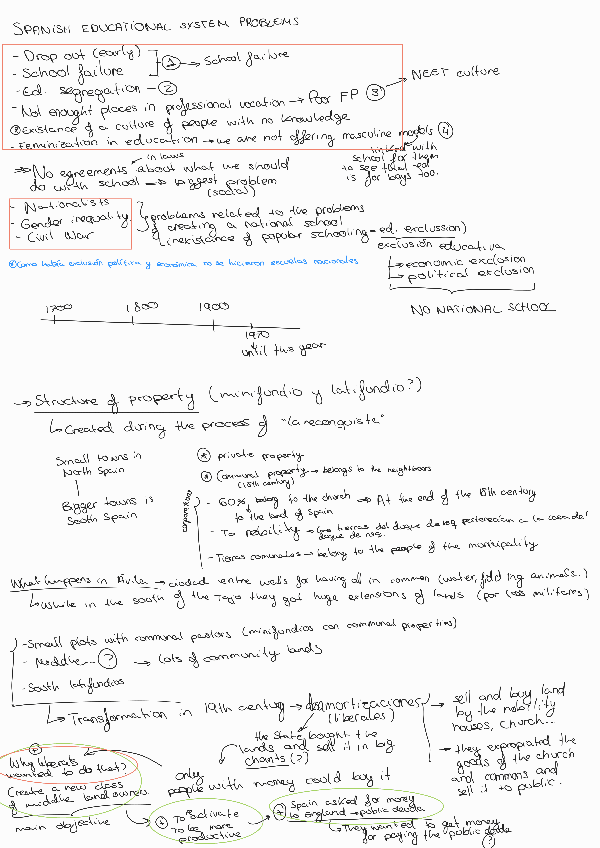 SPANISH EDUCATIONAL SYSTEM PROBLEMS
- Drop out (early)
- School failure
1 → School failure
- Ed. segregation - 2
- Not enought places in professional vocation → Poor FP 3 → NEET culture
Existance of a culture of people with no knowledge
- Feminization in education → we are not offering masculine models 4
linked with
school for them
to see that ed
is for boys too.
in laws
⇒ No agreements about what we should
do with school → biggest problem
(social)
- Nationalists
- Gender inequality
- Civil War
problems related to the problems
of creating a national school
(inexistance of popular schooling = ed. exclussion)
exclusión educativa
↳ economic exclusion
↳ political exclusion
NO NATIONAL SCHOOL
Como había exclusión política y económica no se hicieron escuelas nacionales
1700 1800 1900
1970
until this year
→ Structure of property (minifundio y latifundio?)
↳ Created during the process of "la reconquista"
Small towns in
North Spain
Bigger towns is
South Spain
* private property
* Communal property → belongs to the neighbours
(18th century)
- 60%, belong to the church → At the end of the 18th century
to the land of Spain
- To nobility →
- Tierras comunales → belong to the people of the municipality
What happens in Ávila → for having all in common (water, animals..)
↳ While in the south of the Tajo they got huge extensions of lands (por militares)
- Small plots with communal pastors (minifundios con communal properties)
- Middle... ? → lots of community lands
- South latifundios
↳ Transformation in 19th century → desamortizaciones
(liberales)
→ sell and buy land
by the nobility
houses, church..
→ they expropiated the
goods of the church
and commons and
sell it to public.
the State bought the
lands and sell it in big
chants (?)
only
people with money could buy it
*
Why liberals
wanted to do that?
Create a new class
of middle land owners
main objective
+ To activate
to be more
productive
+ Spain asked for money
to england → public deuda
↳ They wanted to get money
for paying the public deuda
?